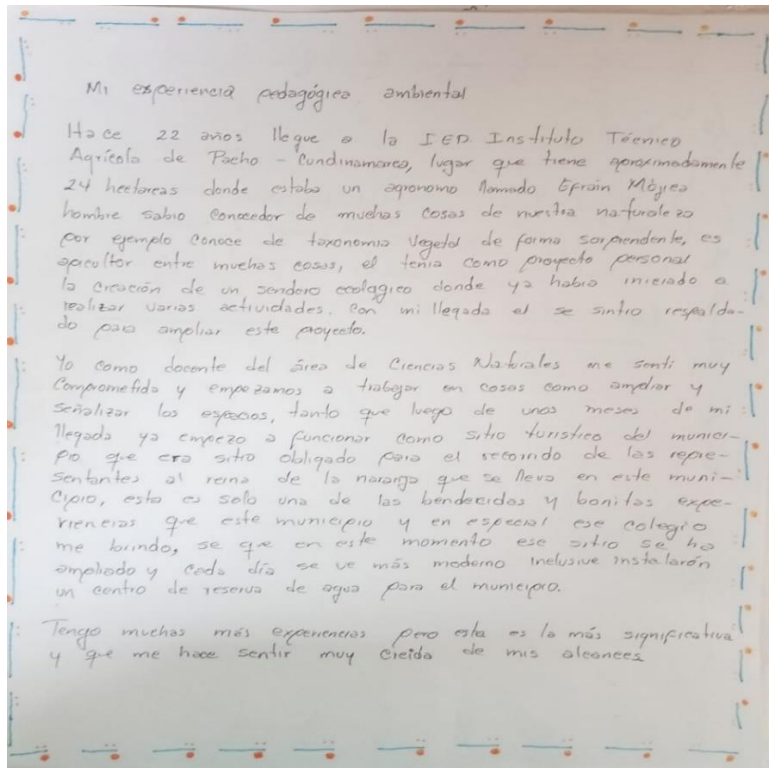 Mi experiencia pedagógica ambiental
Hace 22 años llegue a la IED Instituto Técnico
Agrícola de Pacho - Cundinamarca, lugar que tiene aproximadamente
24 hectareas donde estaba un agronomo llamado Efraín Mójica
hombre sabio conocedor de muchas cosas de nuestra naturaleza
por ejemplo conoce de taxonomia vegetal de forma sorprendente, es
apicultor entre muchas cosas, el tenia como proyecto personal
la creación de un sendero ecológico donde ya habia iniciado a
realizar varias actividades. Con mi llegada el se sintio respalda-
do para ampliar este proyecto.
Yo como docente del área de Ciencias Naturales me senti muy
comprometida y empezamos a trabajar en cosas como ampliar y
señalizar los espacios, tanto que luego de unos meses de mi
llegada ya empezo a funcionar como sitio turistico del munici-
pio que era sitio obligado para el recorrido de las repre-
sentantes al reina de la naranja que se lleva en este muni-
cipio, esta es solo una de las bendecidas y bonitas expe-
riencias que este municipio y en especial ese colegio
me brindo, se que en este momento ese sitio se ha
ampliado y cada día se ve más moderno inclusive instalarón
un centro de reserva de agua para el municipio.
Tengo muchas más experiencias pero esta es la más significativa
y que me hace sentir muy creida de mis alcances